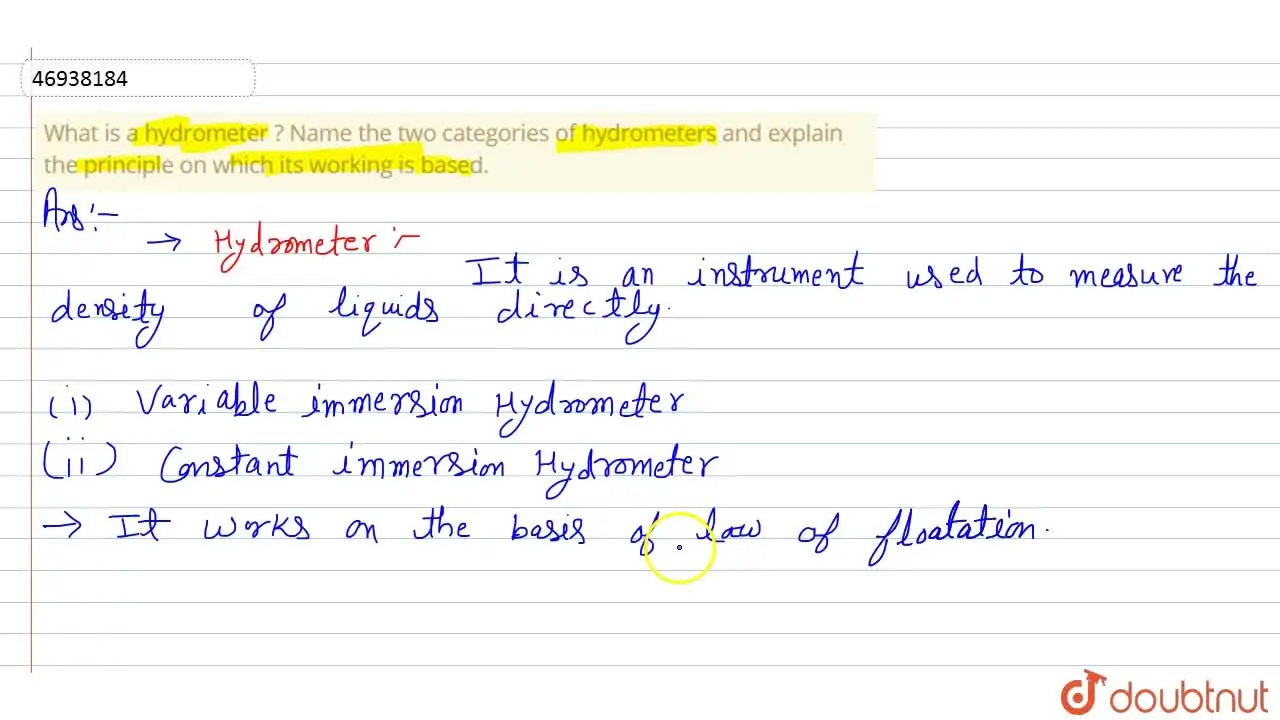 46938184
What is a hydrometer ? Name the two categories of hydrometers and explain
the principle on which its working is based.
Ans:-
→ Hydrometer :-
It is an instrument used to measure the
density of liquids directly.
(i) Variable immersion Hydrometer
(ii) Constant immersion Hydrometer
→ It works on the basis of law of floatation.
doubtnut